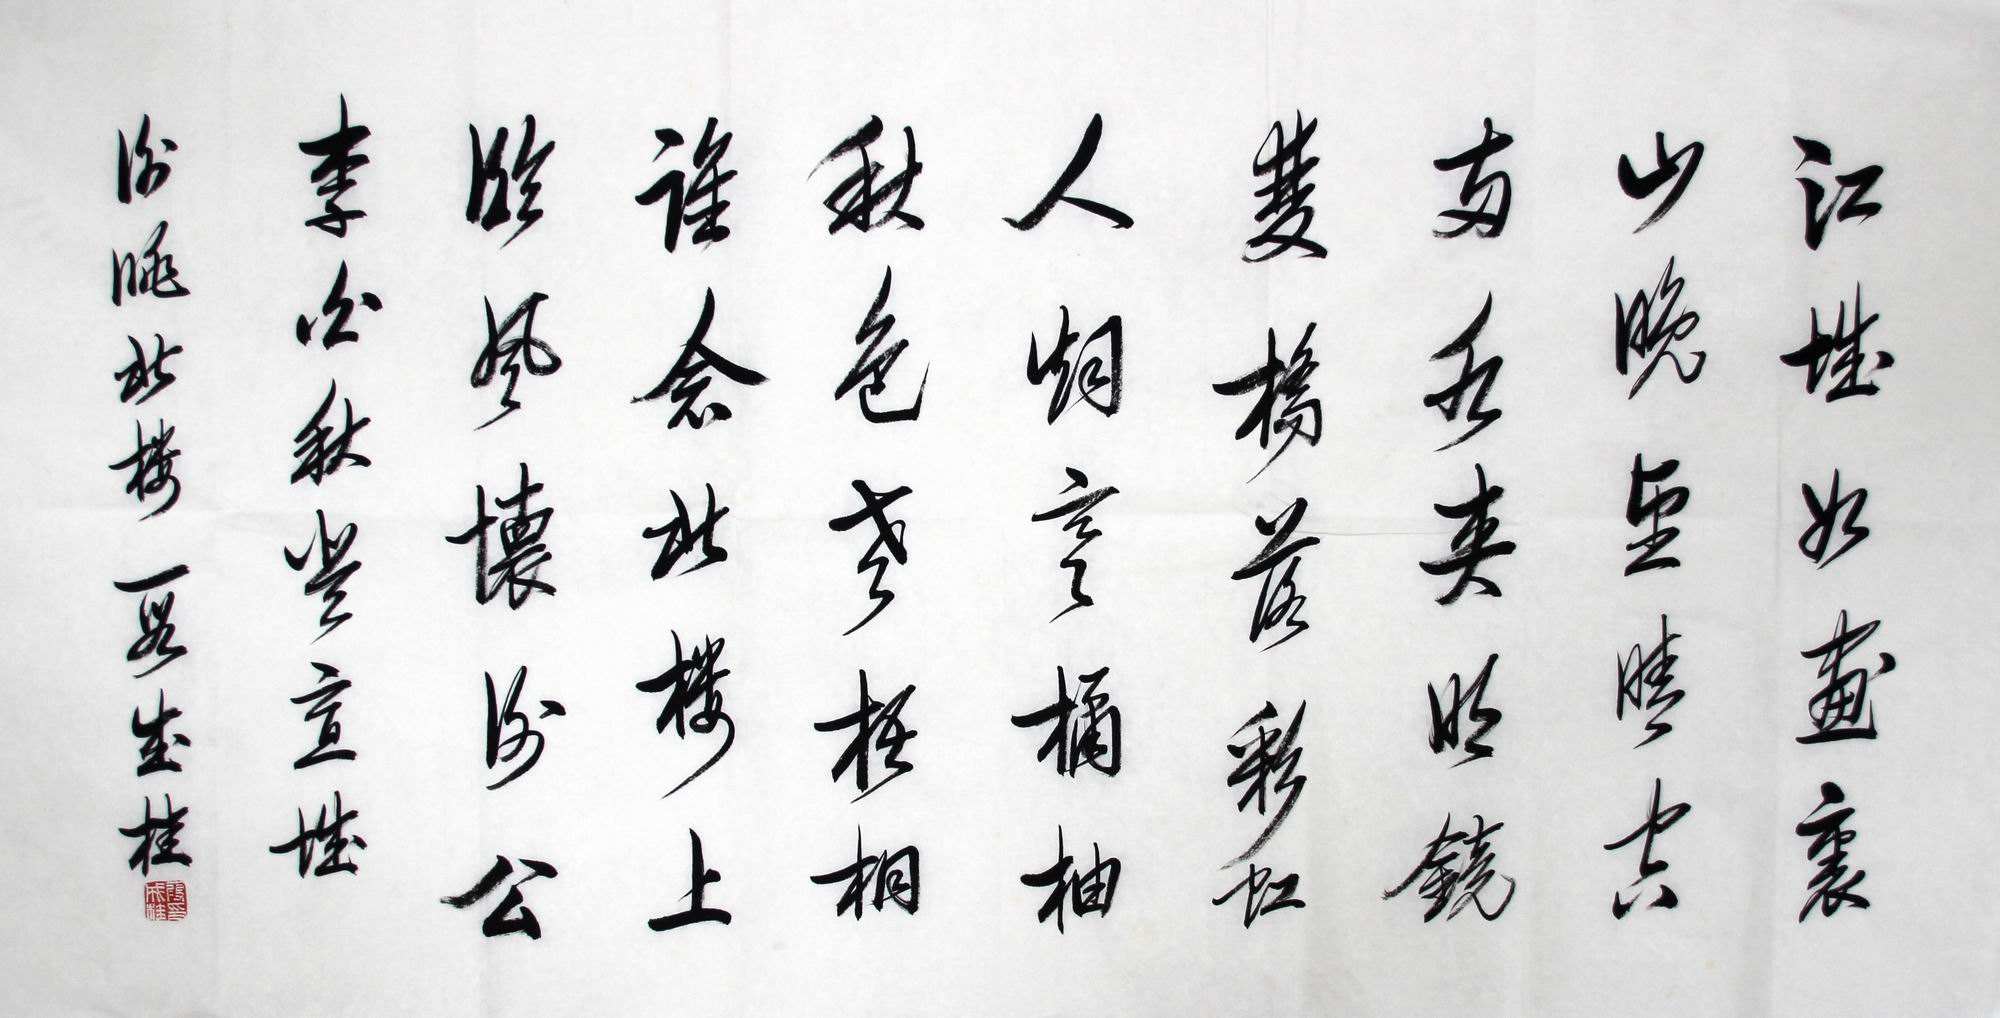 江城如畫裏
山晚望晴空
兩水夾明鏡
雙橋落彩虹
人烟寒橘柚
秋色老梧桐
誰念北樓上
臨風懷謝公
李白秋登宣城
謝朓北樓 一段成桂